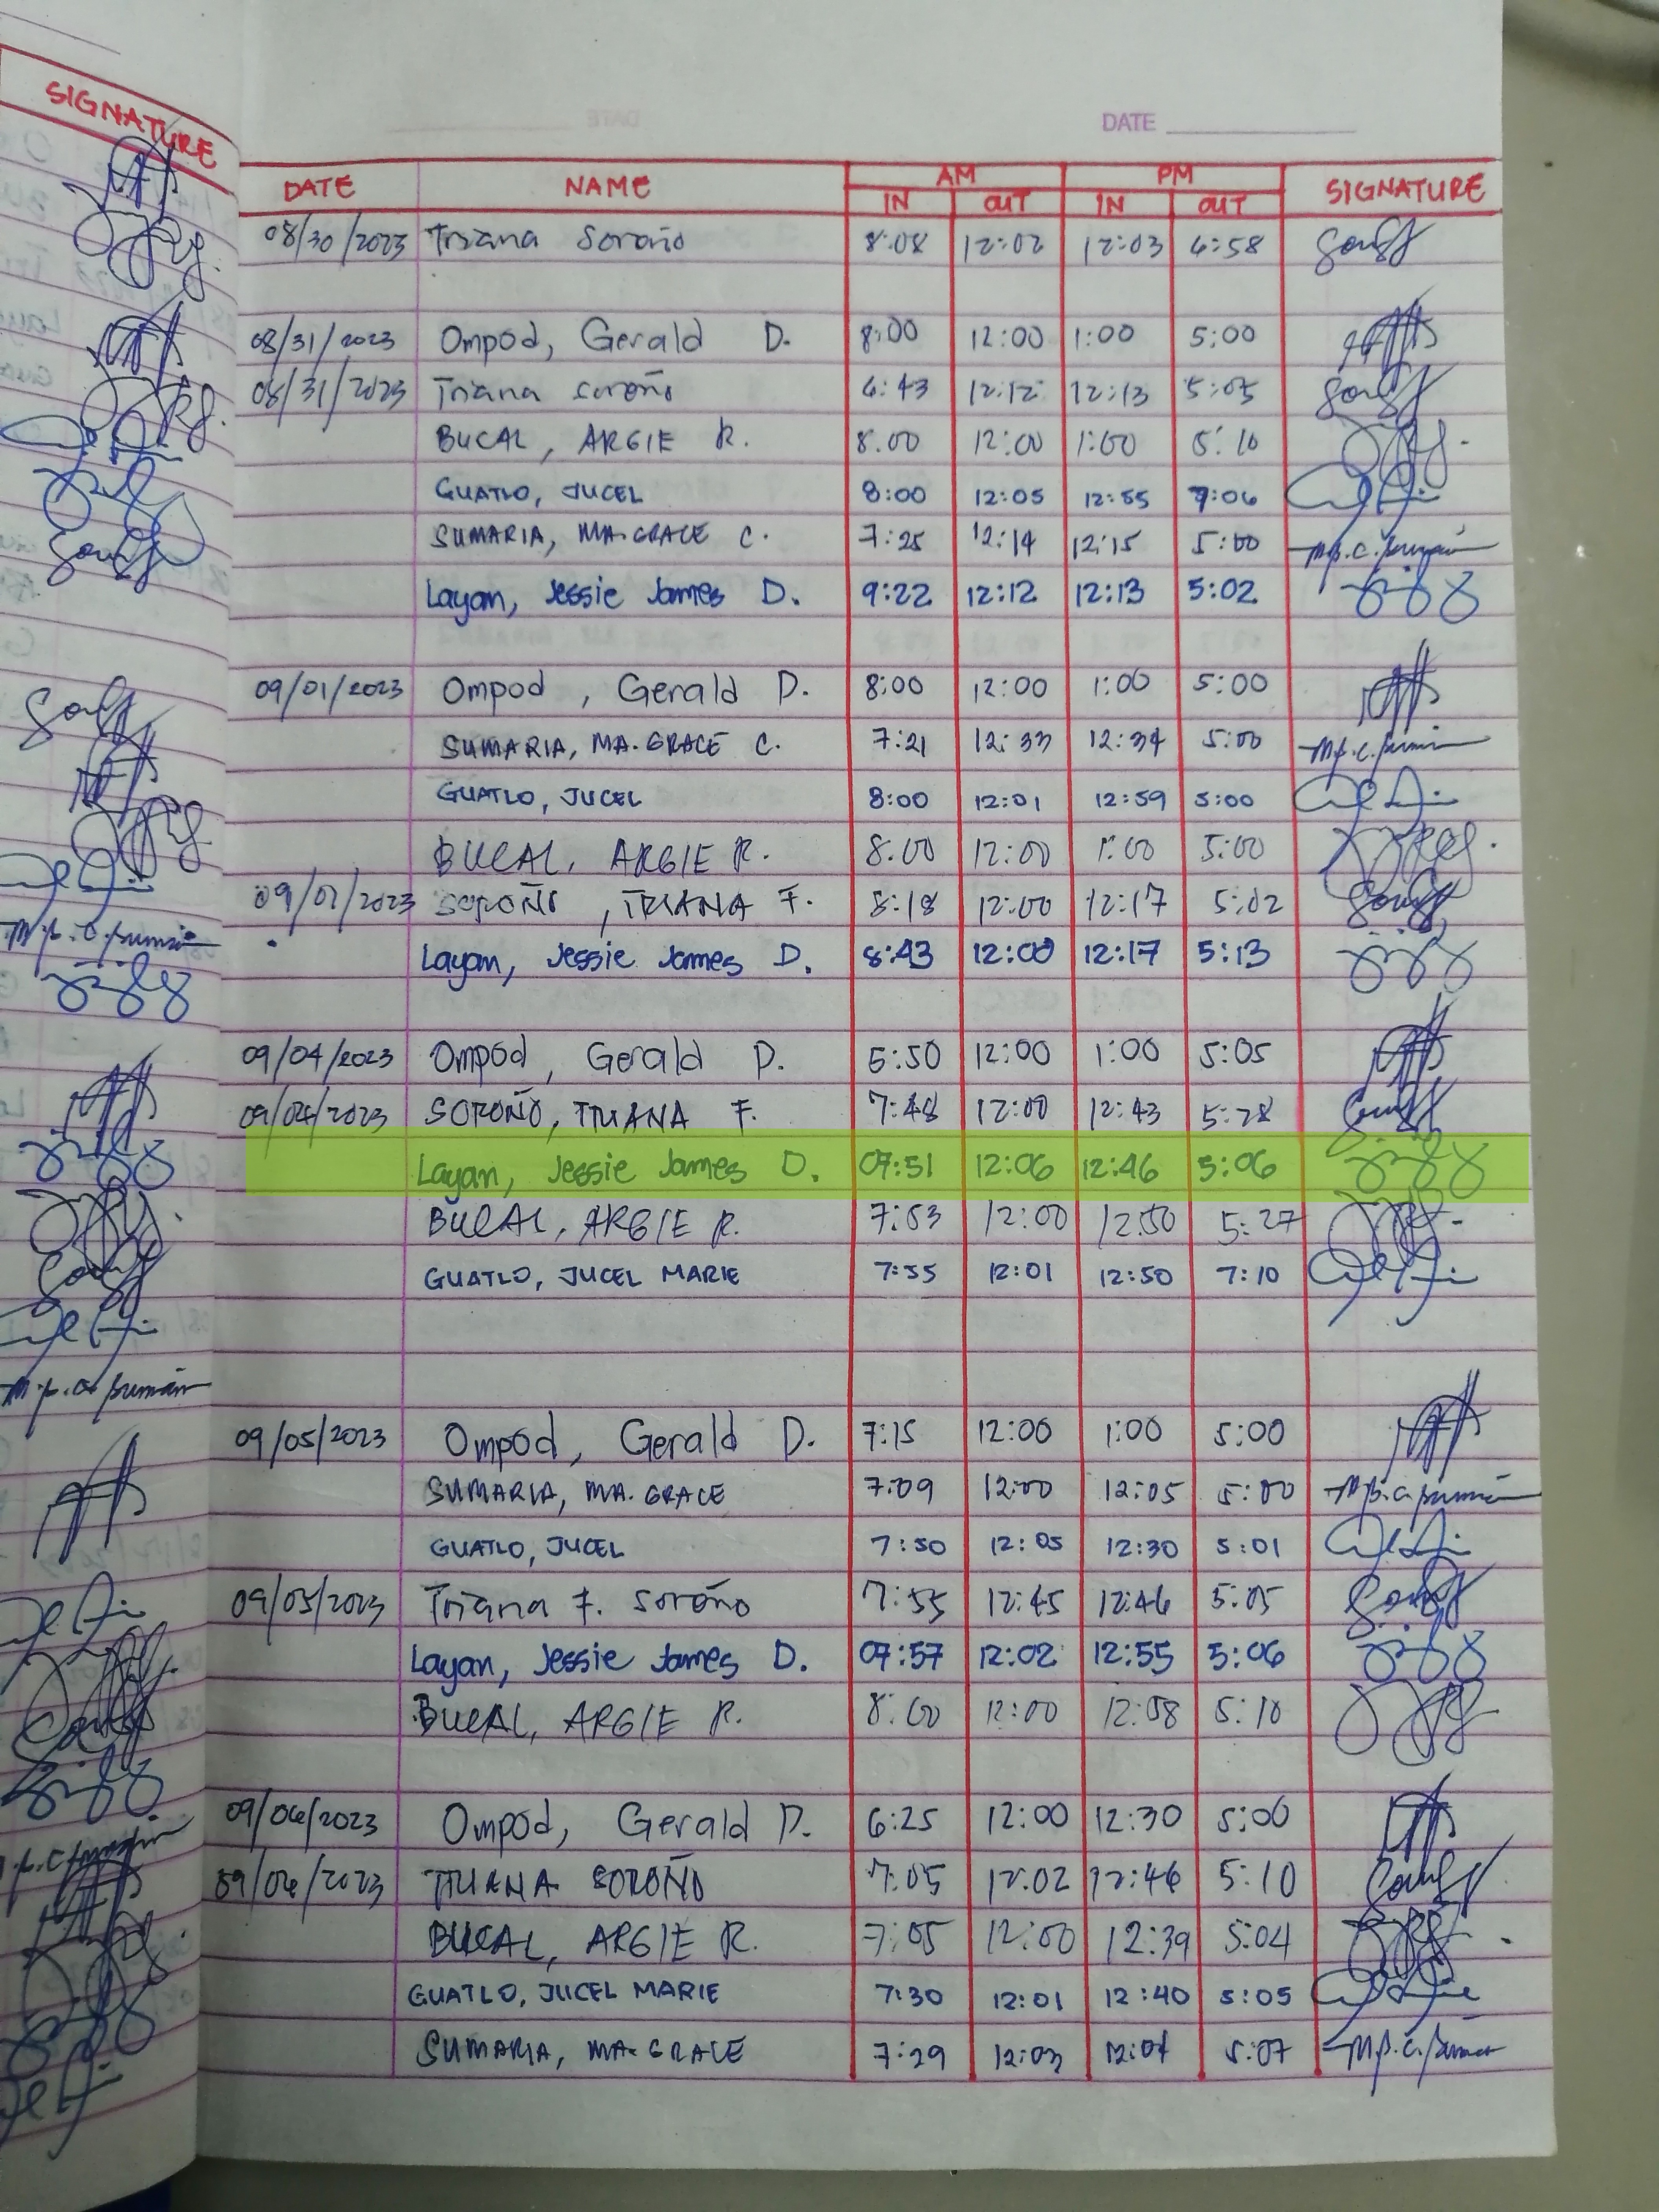 SIGNATURE
DATE
DATE NAME AM PM SIGNATURE
IN OUT IN OUT
08/30/2023 Triana Soroño 8:08 12:02 12:03 6:58
08/31/2023 Ompod, Gerald D. 8:00 12:00 1:00 5:00
08/31/2023 Triana Soroño 6:43 12:12 12:13 5:05
BUCAL, ARGIE R. 8:00 12:00 1:00 5:10
GUATLO, JUCEL 8:00 12:05 12:55 7:06
SUMARIA, MA. GRACE C. 7:25 12:14 12:15 5:00
Layan, Jessie James D. 9:22 12:12 12:13 5:02
09/01/2023 Ompod, Gerald D. 8:00 12:00 1:00 5:00
SUMARIA, MA. GRACE C. 7:21 12:33 12:34 5:00
GUATLO, JUCEL 8:00 12:01 12:59 5:00
BUCAL, ARGIE R. 8:00 12:00 1:00 5:00
SOROÑO, TRIANA F. 8:18 12:00 12:17 5:02
Layan, Jessie James D. 8:43 12:00 12:17 5:13
09/04/2023 Ompod, Gerald D. 12:00 1:00 5:05
09/04/2023 SOROÑO, TRIANA F. 7:48 12:00 12:43 5:28
Layan, Jessie James D. 07:51 12:06 12:46 5:06
BUCAL, ARGIE R. 7:53 12:00 12:50 5:27
GUATLO, JUCEL MARIE 7:55 12:01 12:50 7:10
09/05/2023 Ompod, Gerald D. 7:15 12:00 1:00 5:00
SUMARIA, MA. GRACE 7:09 12:00 12:05 5:00
GUATLO, JUCEL 7:50 12:05 12:30 5:01
09/05/2023 Triana F. Soroño 7:55 12:45 12:46 5:05
Layan, Jessie James D. 07:57 12:02 12:55 5:06
BUCAL, ARGIE R. 8:00 12:00 12:58 5:10
09/06/2023 Ompod, Gerald D. 6:25 12:00 12:30 5:00
09/06/2023 TRIANA SOROÑO 7:05 12:02 12:46 5:10
BUCAL, ARGIE R. 7:05 12:00 12:39 5:04
GUATLO, JUCEL MARIE 7:30 12:01 12:40 5:05
SUMARIA, MA. GRACE 7:29 12:03 12:04 5:07